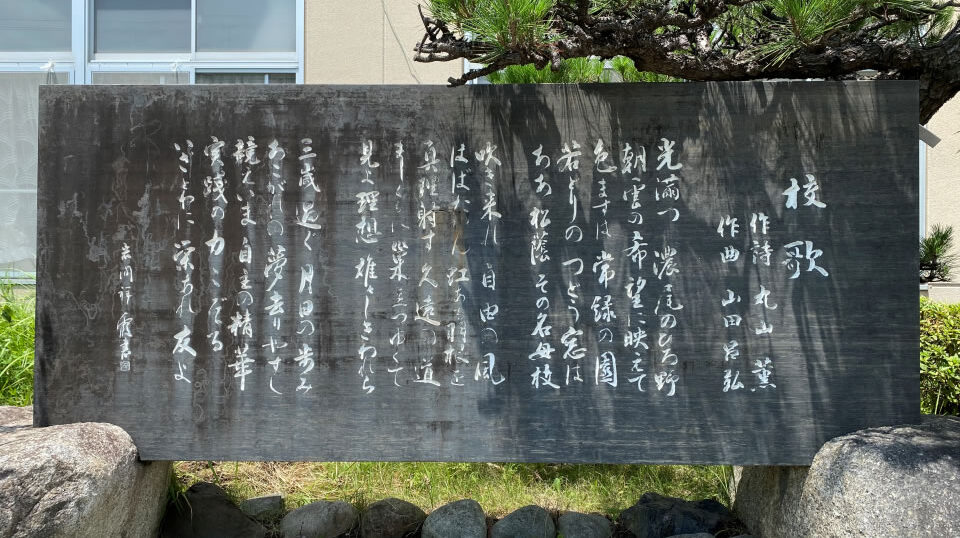 校歌
作詩 丸山 薫
作曲 山田昌弘
光満つ 濃尾のひろ野
朝雲の希望に映えて
色ますは 常緑の園
若どりの つどう窓は
ああ 松蔭 その名母校
吹き来れ 自由の風
はばたかん 虹
真理射す 久遠の道
ましぐらに 巣立つゆくて
見よ理想 雄々しきわれら
三歳逝く 月日の歩み
あこがれの 夢去りやすし
競えいま 自主の精華
実践の 力
いざとわに 栄あれ 友よ